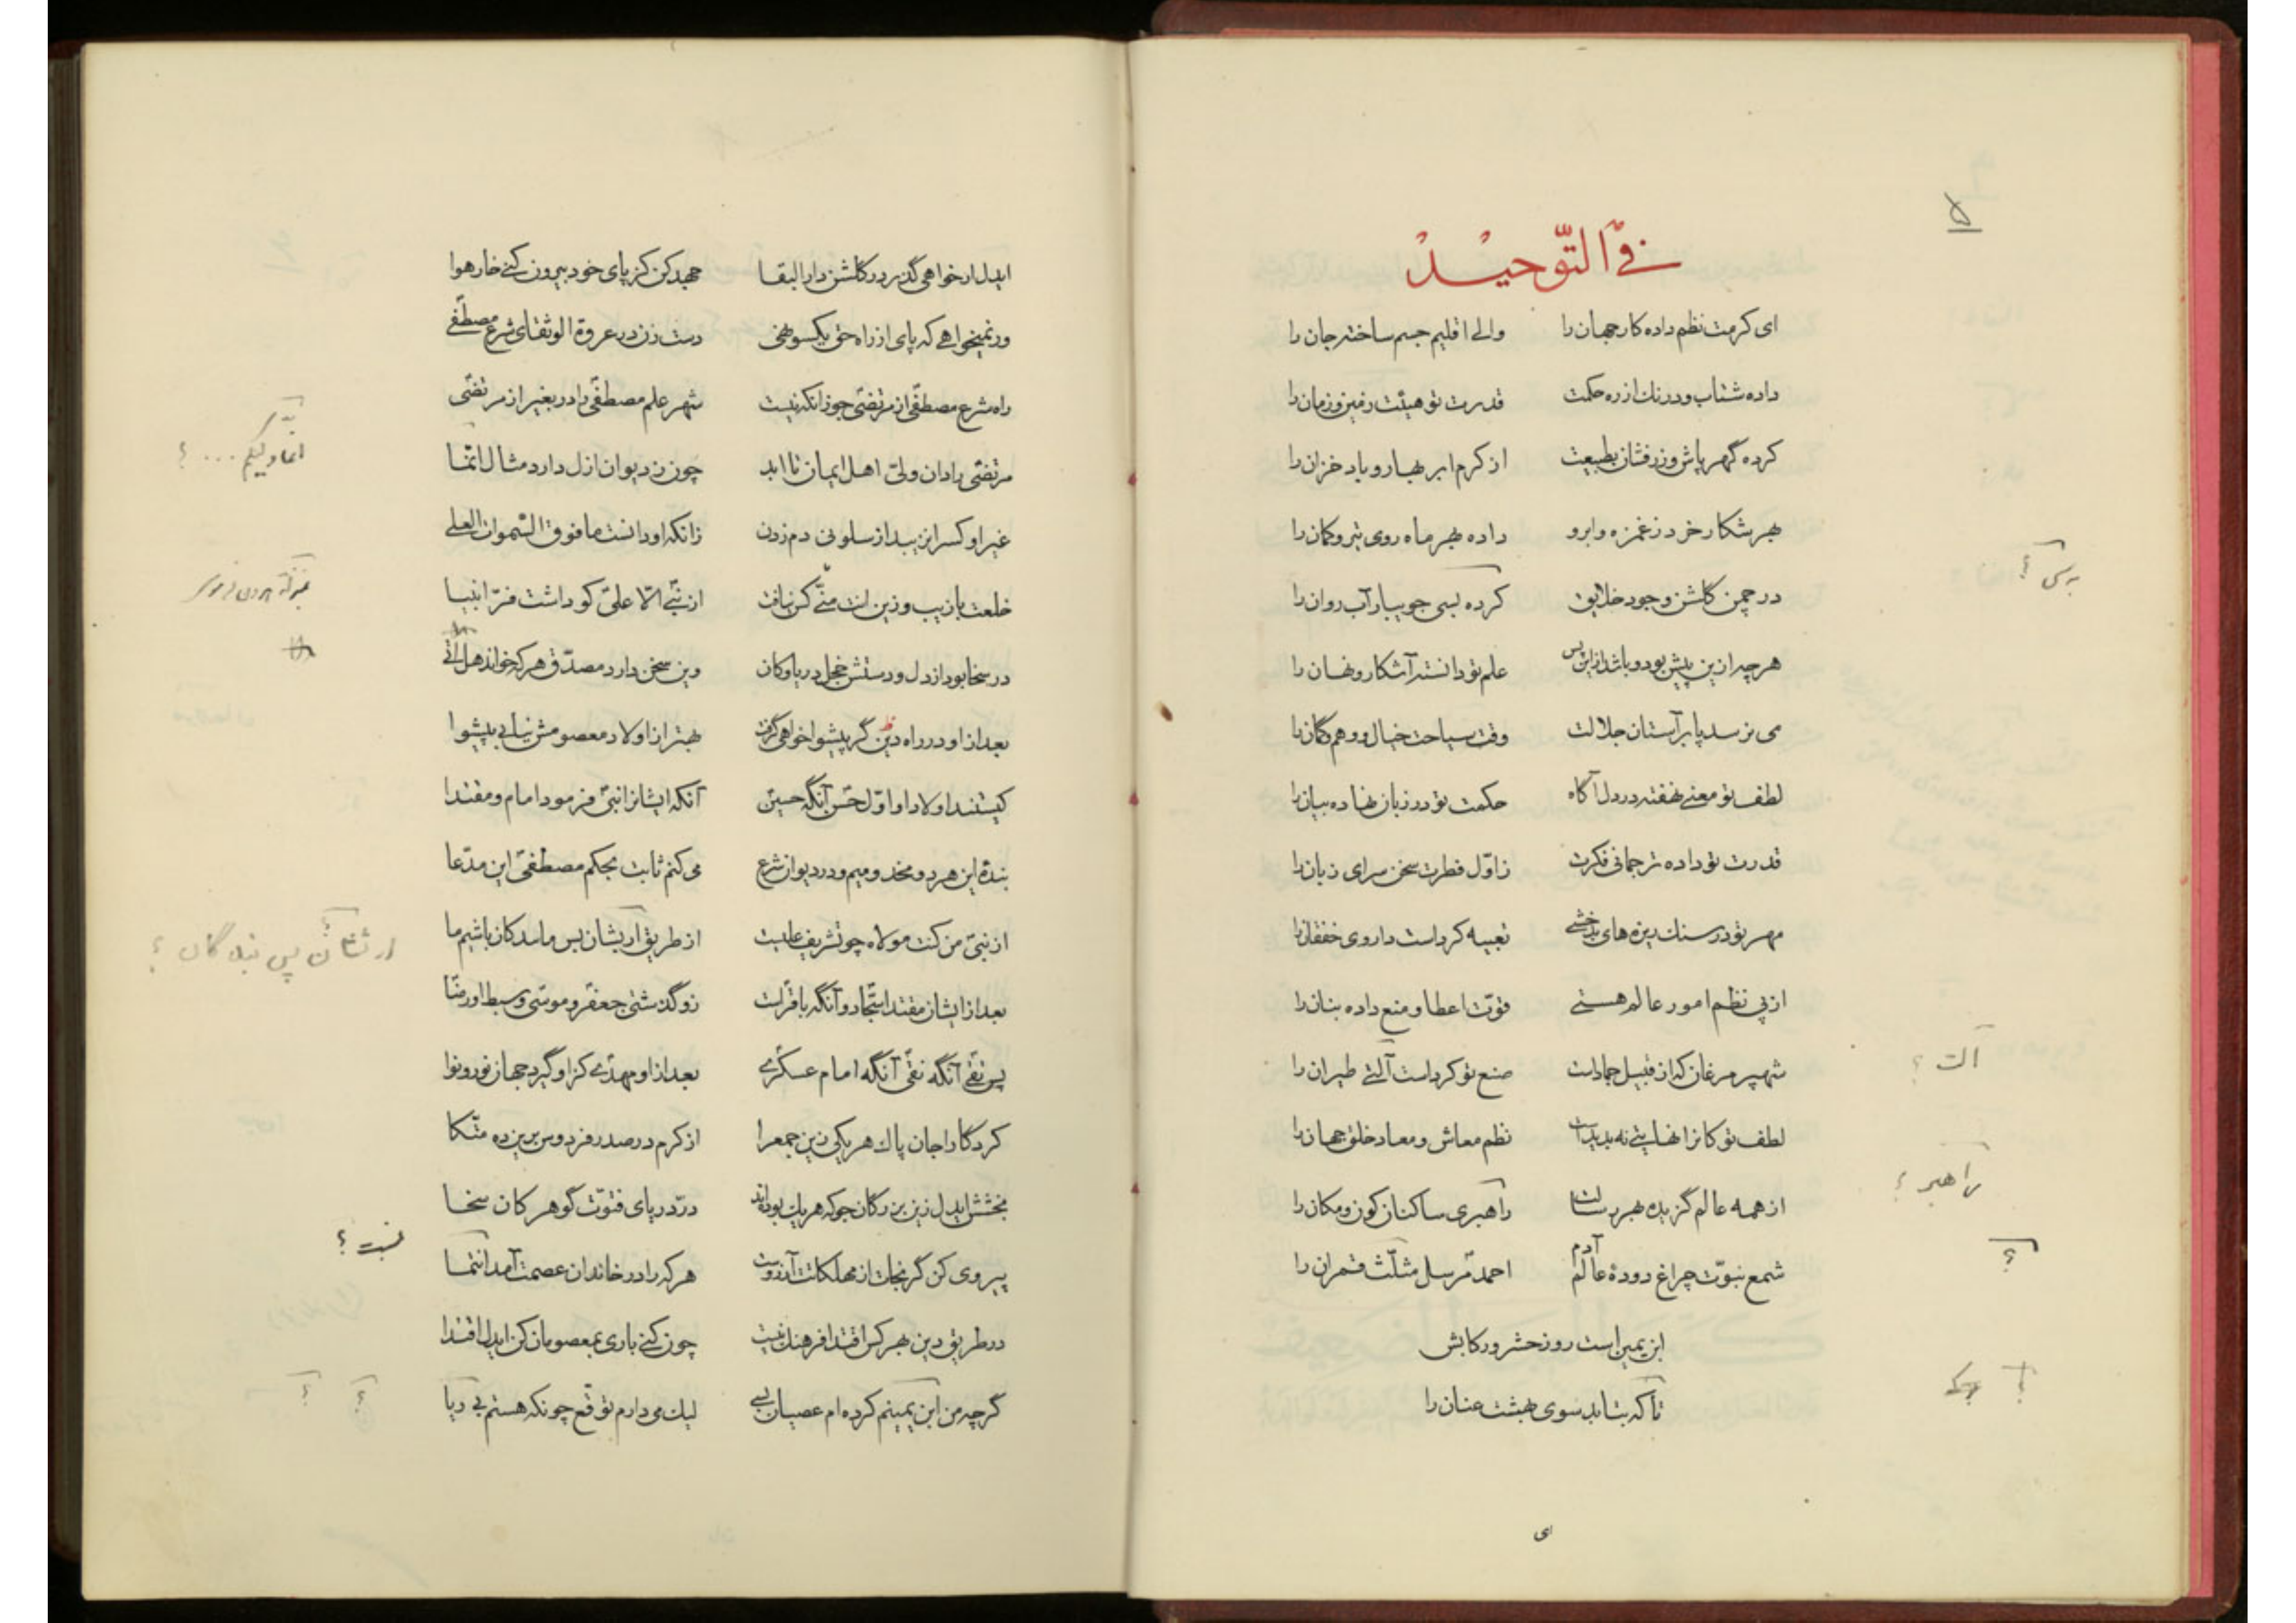 ۵
فی التّوحید
ای کرمت نظم داده کار جهان را والی اقلیم جسم ساخته جان را
داده شتاب و درنك از ره حکمت قدرت تو هیئت زمین و زمان را
کرده گهر پاش و زرفشان بطبیعت از کرم ابر بهار و باد خزان را
بهر شکار خرد ز غمزه و ابرو داده بهر ماه روی تیر و کمان را
در چمن گلشن وجود خلایق کرده بسی جویبار آب روان را
هر چه ازین پیش بود و باشد ازین پس علم تو دانسته آشکار و نهان را
می نرسد پا بر آستان جلالت وقت سیاحت خیال و وهم و گمان را
لطف تو معنی نهفته در دل آگاه حکمت تو در زبان نهاده بیان را
قدرت تو داده ترجمانی فکرت ز اوّل فطرت سخن سرای زبان را
مهر تو در سنك ریزه های بدخشی تعبیه کرداست داروی خفقان را
از پی نظم امور عالم هستی قوّت اعطا و منع داده بنان را
شهپر مرغان که از قبیل جماداست صنع تو کرداست آلتی طیران را
لطف تو کانرا نهایتی نه پدیداست نظم معاش و معاد خلق جهان را
از همه عالم گزیده بهر رسالت راهبری ساکنان کون و مکان را
شمع نبوّت چراغ دودهٔ عالم آدم احمد مرسل مثلّث قمران را
ابن یمین است روز حشر و رکابش
تا که بتابد سوی بهشت عنان را
ای
آلت ؟
راهبر ؟
؟
ایدل ار خواهی گذر در گلشن دار البقا جهد کن کز پای خود بیرون کنی خار هوا
ور نمیخواهی که پای از راه حق یکسو نهی دست زن در عروة الوثقای شرع مصطفی
راه شرع مصطفی از مرتضی جو زانکه نیست شهر علم مصطفی را در بغیر از مرتضی
مرتضی را دان ولیّ اهل ایمان تا ابد چون ز دیوان ازل دارد مثال انّما
غیر او کس را نرسد از سلونی دم زدن زانکه او دانست ما فوق السّموات العلی
خلعت با زیب و زین انت منّی کس نیافت از نبی الّا علی کو داشت فرّ انبیا
در سخا بود از دل و دستش خجل دریا و کان وین سخن دارد مصدّق هر که خواند هل اتی
بعد از او در راه دین گر پیشوا خواهی گرفت بهتر از اولاد معصومش نیابی پیشوا
کیستند اولاد او اوّل حسن آنگه حسین آنکه ایشانرا نبی فرمود امام و مقتدا
بندهٔ این هر دو مخدومیم و در دیوان شرع می کنم ثابت بحکم مصطفی این مدّعا
از نبی من کنت مولاه چو تشریف علیست از طریق ارث ایشان بس ما بندکان باشیم ما
بعد از ایشان مقتدا سجّاد و آنگه باقر است زو گذشتی جعفر و موسی و سبط او رضا
پس تقی آنگه نقی آنگه امام عسکری بعد از او مهدی کز او گیرد جهان نور و نوا
کردگارا جان پاك هر یکی زین جمع را از کرم در صدر فردوس برین ده متّکا
بخشش ایدل زین بزرگان جو که هر یك بوده اند درّ دریای فتوّت گوهر کان سخا
پیروی کن گر نجات از مهلکاتت آرزوست هر که را در خاندان عصمت آمد انتما
در طریق دین بهر کس اقتدا فرهنك نیست چون کنی باری بمعصومان کن ایدل اقتدا
گرچه من ابن یمینم کرده ام عصیان بسی لیك می دارم توقّع چونکه هستم بی ریا
انّما ولیکم ... ؟
؟
نسبت ؟
؟ ؟